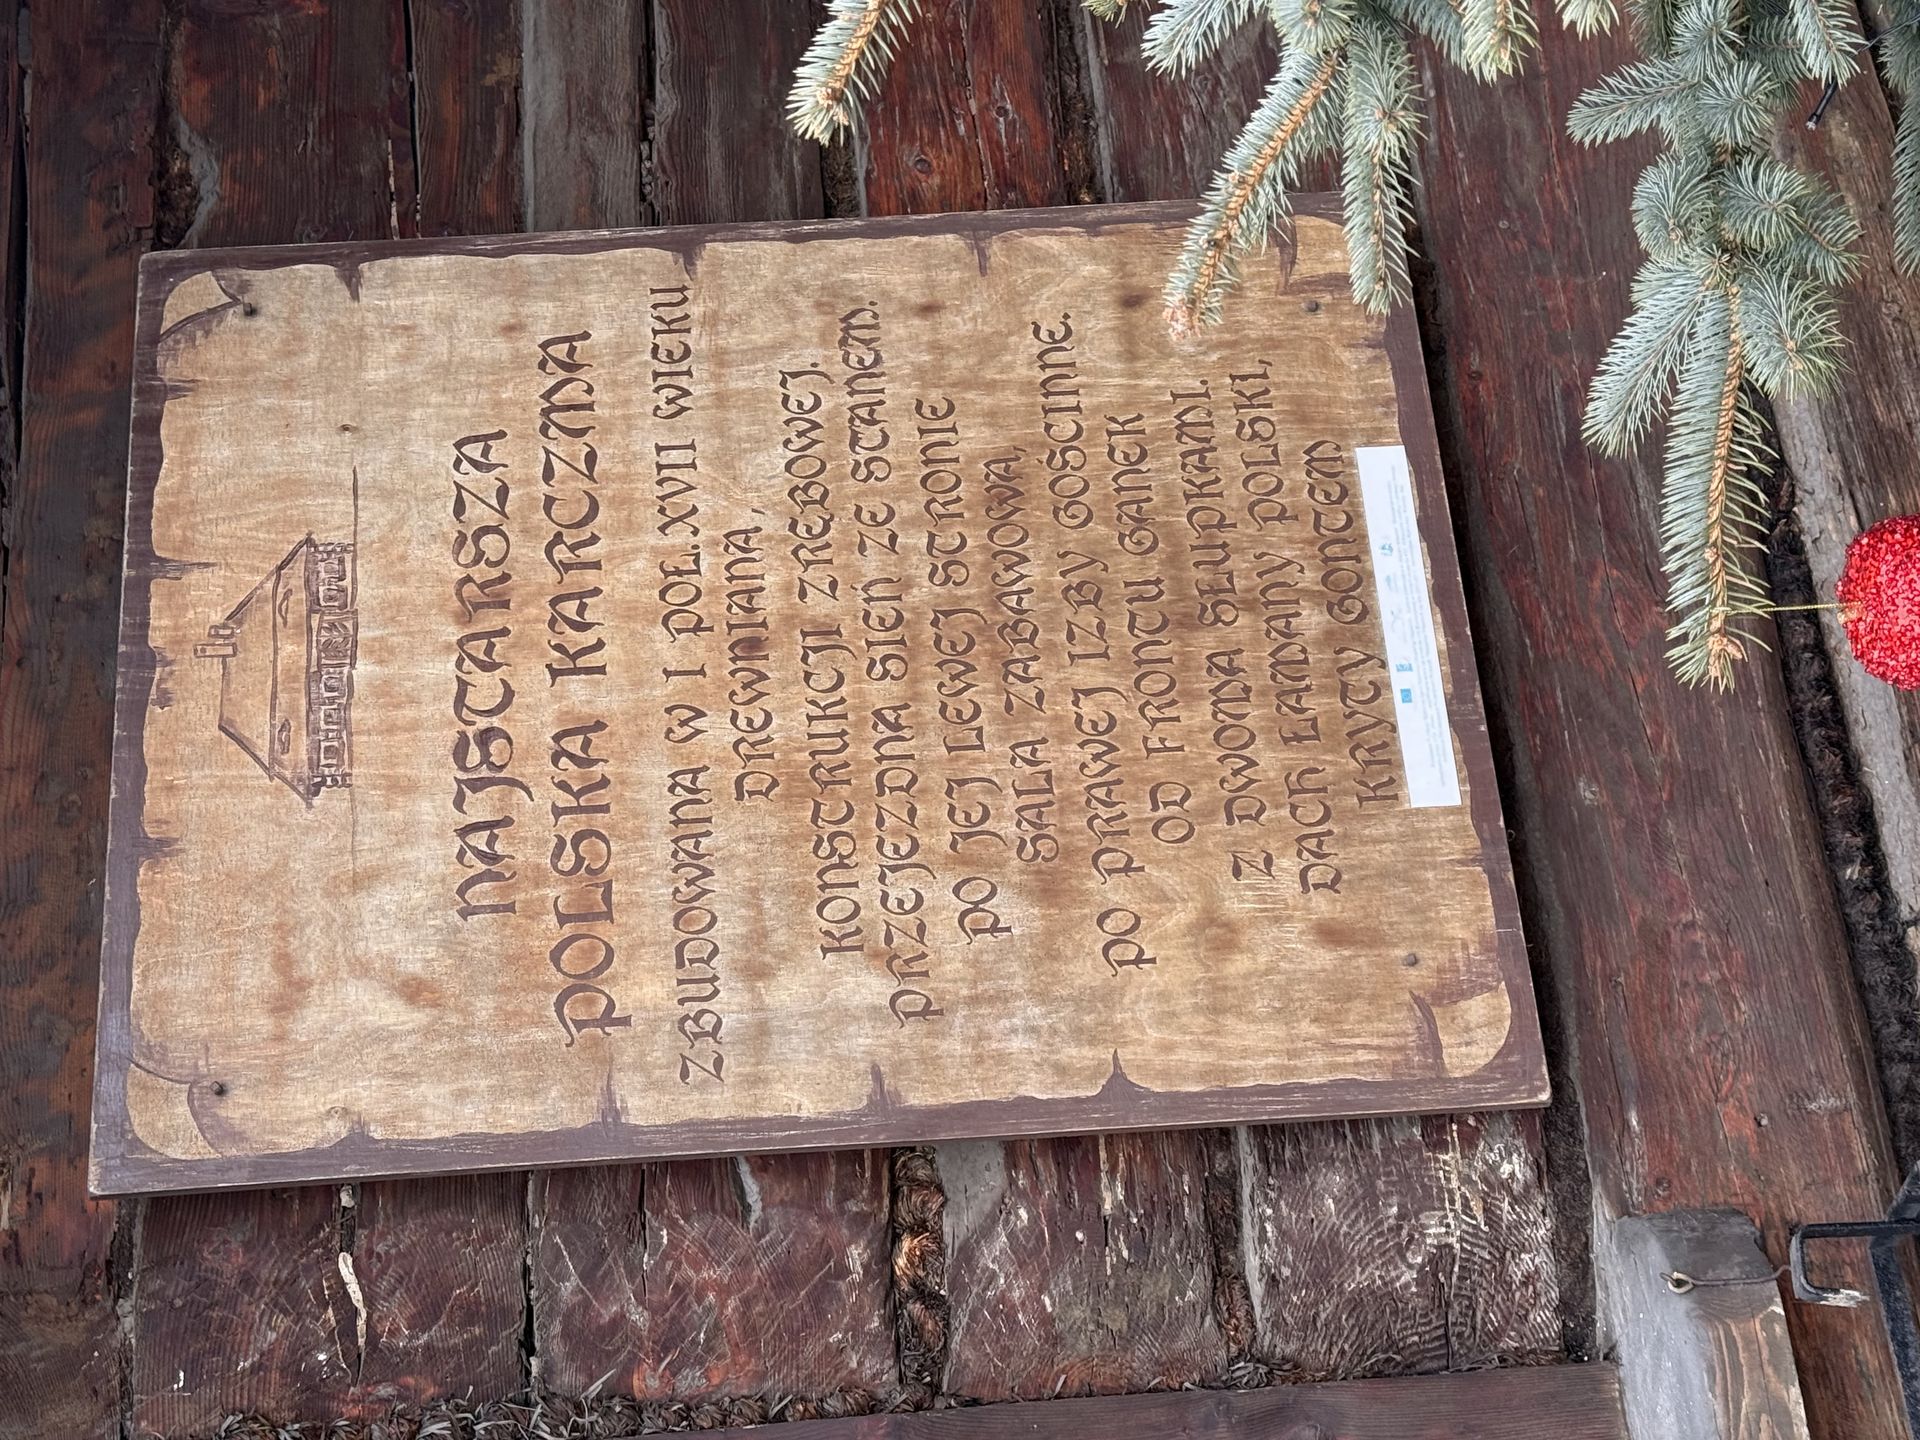 NAJSTARSZA
POLSKA KARCZMA
ZBUDOWANA W I POŁ.XVII WIEKU
DREWNIANA,
KONSTRUKCJI ZRĘBOWEJ.
PRZEJEZDNA SIEŃ ZE STANEM.
PO JEJ LEWEJ STRONIE
SALA ZABAWOWA,
PO PRAWEJ IZBY GOŚCINNE.
OD FRONTU GANEK
Z DWOMA SŁUPKAMI.
DACH ŁAMANY POLSKI,
KRYTY GONTEM